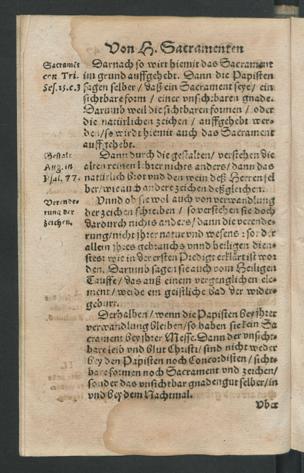 Von H. Sacramenten
Sacramēt
con Tri.
Ses. 13. c. 3
Darnach so wirt hiemit das Sacrament
im grund auffgehebt. Dann die Papisten
sagen selber / daß ein Sacrament seye / ein
sichtbare form / einer vnsichtbaren gnade.
Darumb weil die sichtbaren formen / oder
die natürlichen zeichen / auffgehebt wer-
den / so wirdt hiemit auch das Sacrament
auffgehebt.
Gestalt
Aug. in
Psal. 77.
Dann durch die gestalten / verstehen die
alten reinen Lehrer nichts anders / dann das
natürlich Brot vnd den wein deß Herren sel
ber / wie auch andere zeichen deßgleichen.
Verende-
rung der
zeichen.
Vnnd ob sie wol auch von verwandlung
der zeichen schreiben / so verstehen sie doch
dardurch nichts anders / dann die verende-
rung / nicht ihrer natur vnd wesens : sonder
allein ihres gebrauchs vnnd heiligen dien-
stes : wie in der ersten Predigt erklärt ist wor
den. Darumb sagen sie auch vom Heiligen
Tauffe / das auß einem vergenglichen ele-
ment / werde ein geistliche bad der wider-
geburt.
Derhalben / wenn die Papisten bey ihrer
verwandlung bleiben / so haben sie kein Sa
crament bey ihrer Messe. Dann der vnsicht-
bare leib vnd blut Christi / sind nicht weder
bey den Papisten noch Concordisten / sicht-
bare formen noch Sacrament vnd zeichen /
sonder das vnsichtbar gnadengut selber / in
vnd bey dem Nachtmal.
Vber